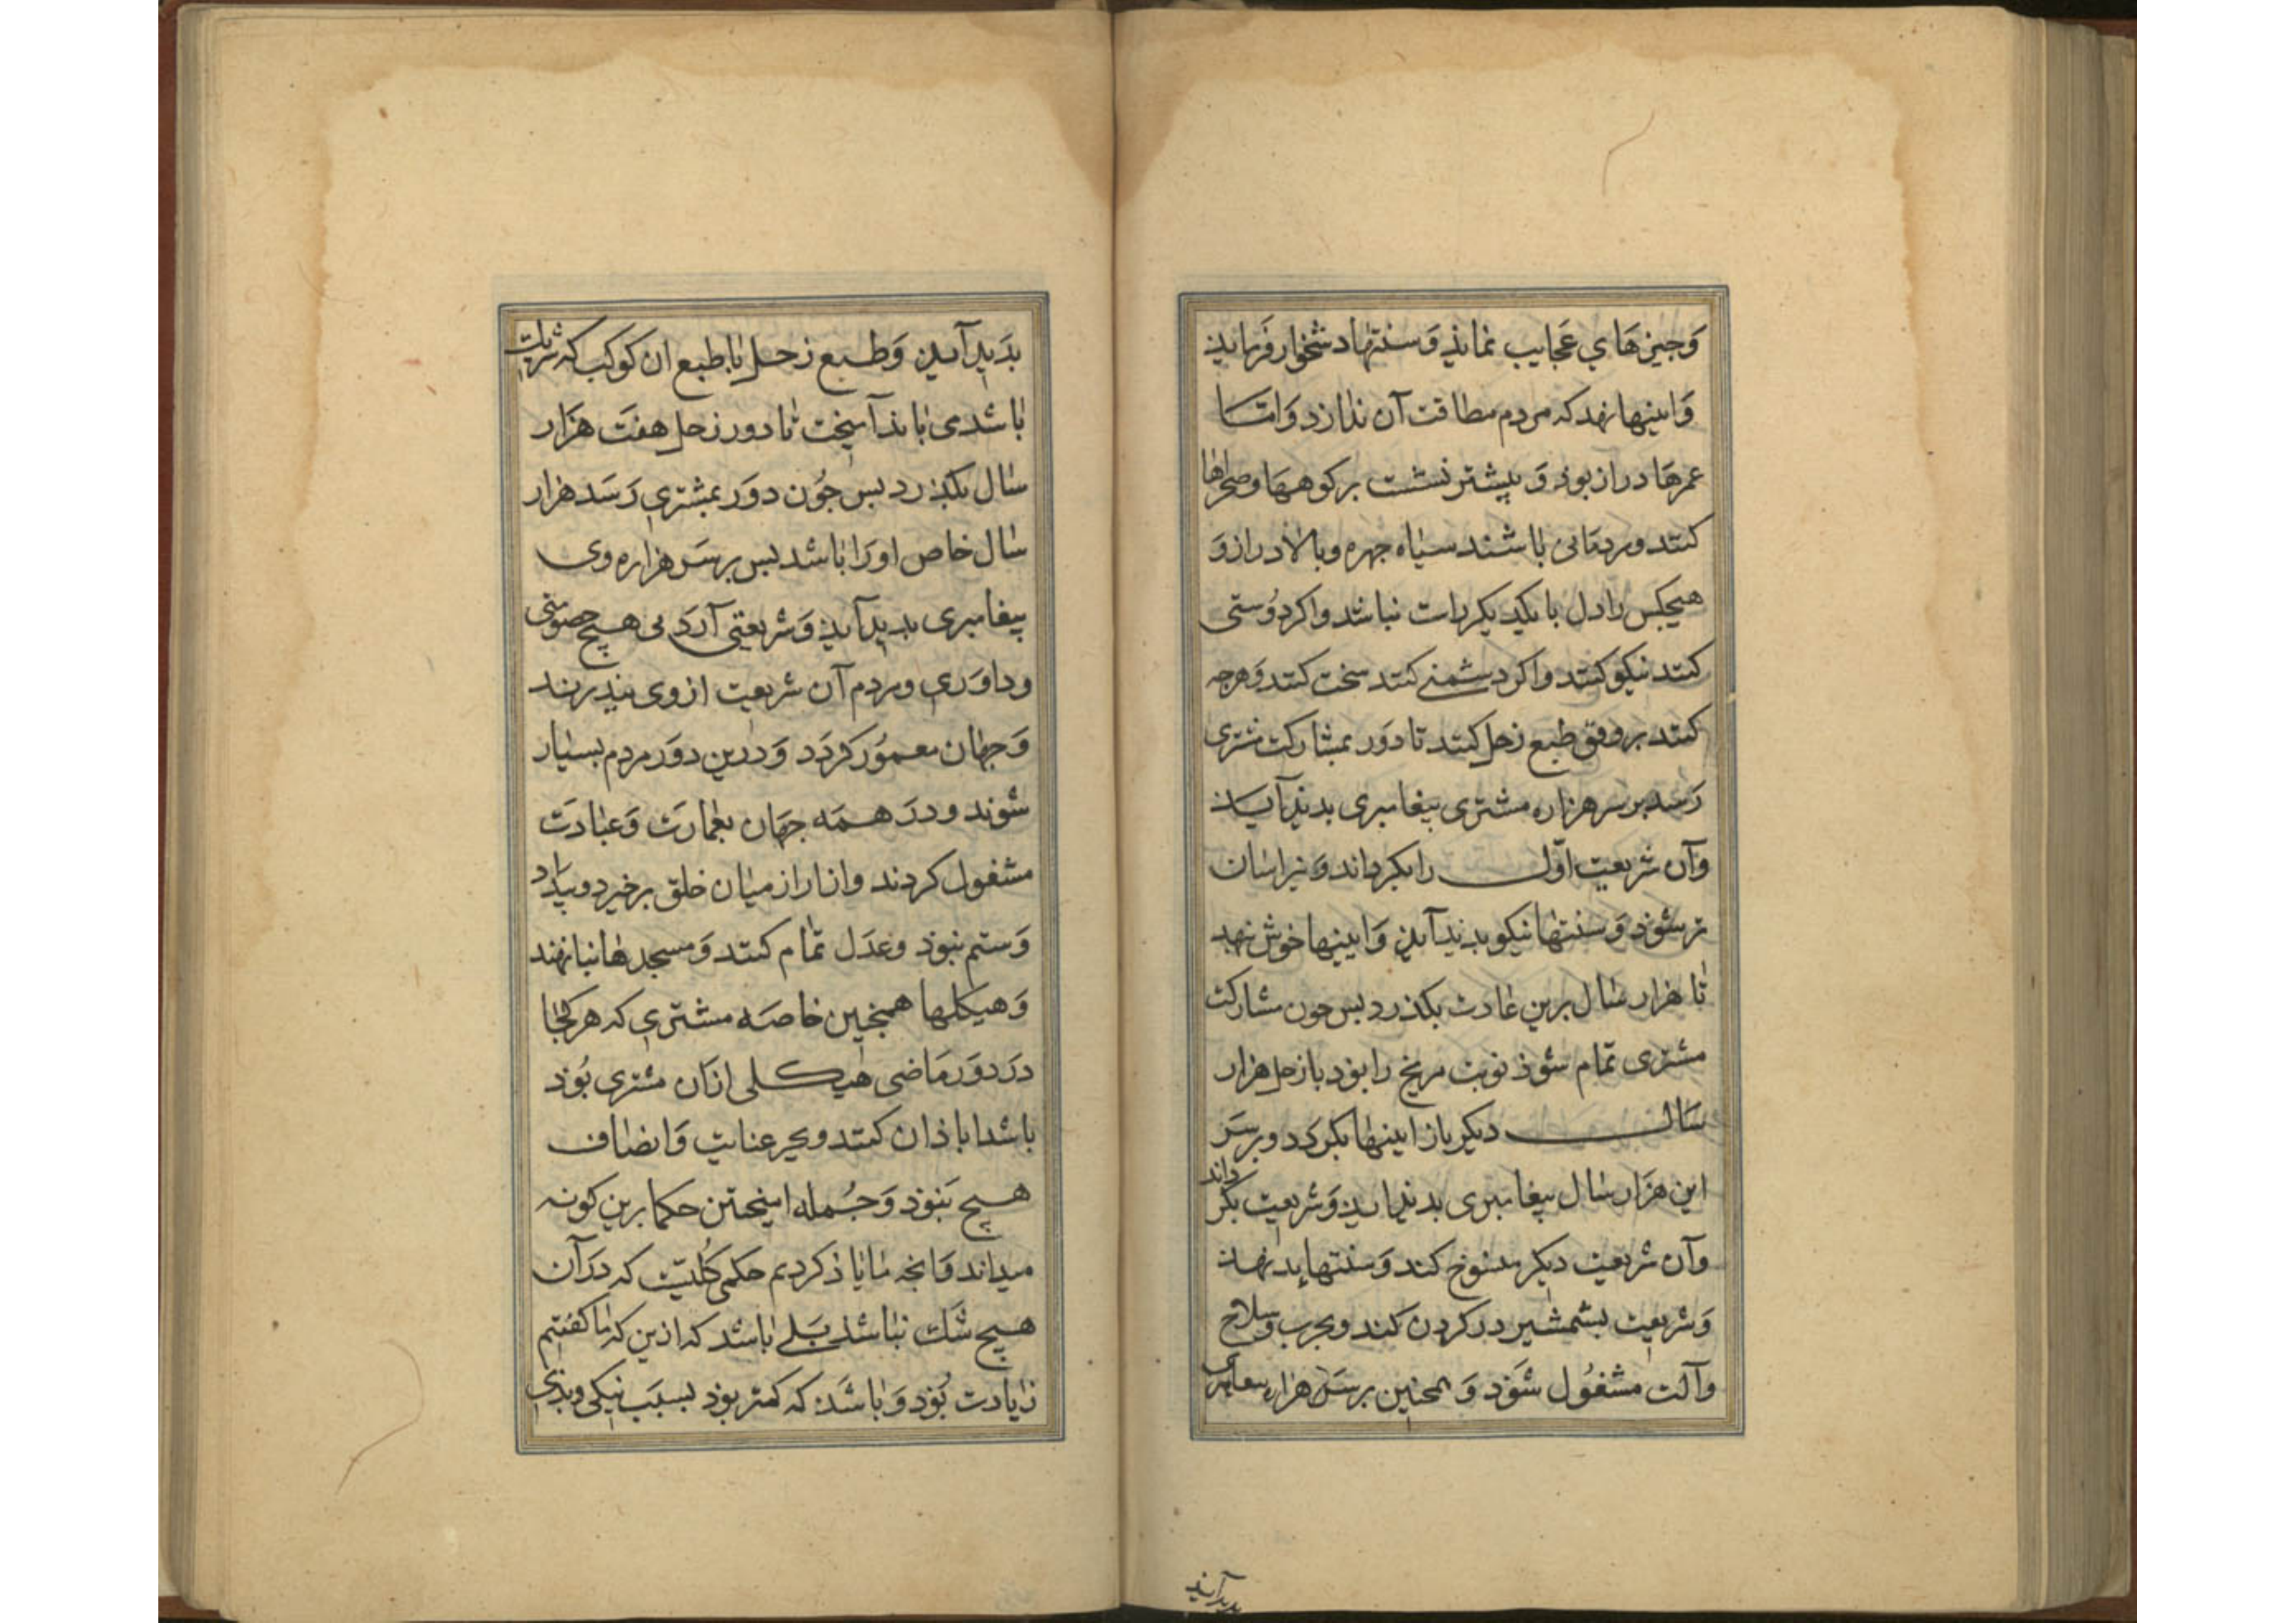 وَجیزهَاي عَجایب نماید وَسنتهاد شخوار فرماید
وَایینها نهد که مردم مطاقت آن ندارد وَامّا
عمرهَا دراز بوذ وَ بیشتر نشست بر کوهها وصحراها
کنند ومردمانی باشند سیاه جهره وبالا دراز وَ
هیجکس را دل با یکدیکر راست نباشد واکر دُوستی
کنند نیکو کنند واکر دشمنے کنند سخت کنند وَهرجه
کنند بر وفق طبع زحل کنند تا دَور بمشارکت مشتری
رَسد بر سر هزاره مشتری بیغامبری بدیذ آیذ
وآن شریعت اوّل را بکرداند وَ
تر شوَذ وَسنتهَا نیکو بدیذ آیذ وَایینها خوش نهد
تا هزار سال برین عادت بکذرد بس جون مشارکت
مشتری تمام شوَذ نوبت مریخ را بوَد با زحل هزار
سَال دیکر باز ایینها بکردد وبر سَر
این هزَار سال بیغامبری بدیذ آیذ وَشریعت بکرداند
وآن شریعت دیکر منسوخ کند وَسنتها بد نهذ
وَشریعت بشمشیر در کردن کند وبحرب وسلاح
وآلت مشغُول شوَذ وَ همجنین بر سَر هزاره بیغامبری
بدیدآید
بذَیذ آیذ وَطبع زحل با طبع ان کوکب که شریک
باشدی بایذ آمیخت تا دور زحل هفت هزَار
سال بکذرد بس جُون دوَر بمشتري رَسَد هزار
سال خاص اورَا باشد بس بر سَر هزاره وی
بیغامبری بدیذ آیذ وَشریعتی آرَد بی هیج خصومتی
وداوَري ومردم آن شریعت از وی ببذیرند
وَجهان معموُر کردَد وَدرین دوَر مردم بسیار
شوَند ودرَ همَه جهَان بعمارَت وَعبادَت
مشغول کردند وازار از میان خلق برخیزد وبیداد
وَستم نبوَذ وعدَل تمام کنند وَمسجدها بنا نهند
وَهیکلها همجنین خاصَه مشتري که هر کجا
درَ دوَر مَاضی هیکلی ازان مشتری بُوَذ
باشد اباذان کنند وبجز عنایت وَانصاف
هیج نبَوَذ وَجُمله اینجنین حکما برین کونه
میداند وَانجه ما یاذ کردیم حکمی کُلیّت که درَ آن
هیج شَک نباشد بَلے باشد که ازین که ما کفتیم
زیادت بُوَذ وَباشَذ که کمتر بوَذ بسبَب نیکی وبذي